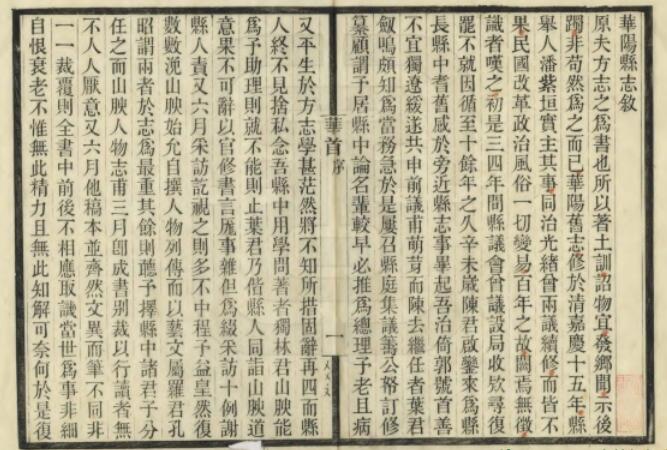 華陽縣志敘
原夫方志之爲書也所以著土訓詔物宜發鄉聞示後
躅非苟然爲之而已華陽舊志修於清嘉慶十五年縣
舉人潘紫垣實主其事同治光緒曾兩議續修而皆不
果民國改革政治風俗一切變易百年之故闕焉無徵
識者嘆之初是三四年間縣議會曾議設局收欵尋復
罷不就因循至十餘年之久辛未歲陳君啟鑾來爲縣
長縣中耆舊感於旁近縣志事畢起吾治倚郭號首善
不宜獨遼緩遂共申前議甫萌芽而陳去繼任者葉君
劔鳴頗知爲當務急於是屢召縣庭集議籌公帑訂修
纂顧謂予居縣中論名輩較早必推爲總理予老且病
又平生於方志學甚茫然將不知所措固辭再四而縣
人終不見捨私念吾縣中用學問著者獨林君山腴能
爲予助理則就不能則止葉君乃偕縣人同詣山腴道
意果不可辭以官修書言厖事雜但爲綴采訪十例謝
縣人責又六月采訪訖視之則多不中程予益皇然復
數數浼山腴始允自撰人物列傳而以藝文屬羅君孔
昭謂兩者於志爲最重其餘則聽予擇縣中諸君子分
任之而山腴人物志甫三月卽成書別裁以行讀者無
不人人厭意又六月他稿本並齊然文異而筆不同非
一一裁覆則全書中前後不相應取譏當世爲事非細
自恨衰老不惟無此精力且無此知解可奈何於是復
華首
序
一